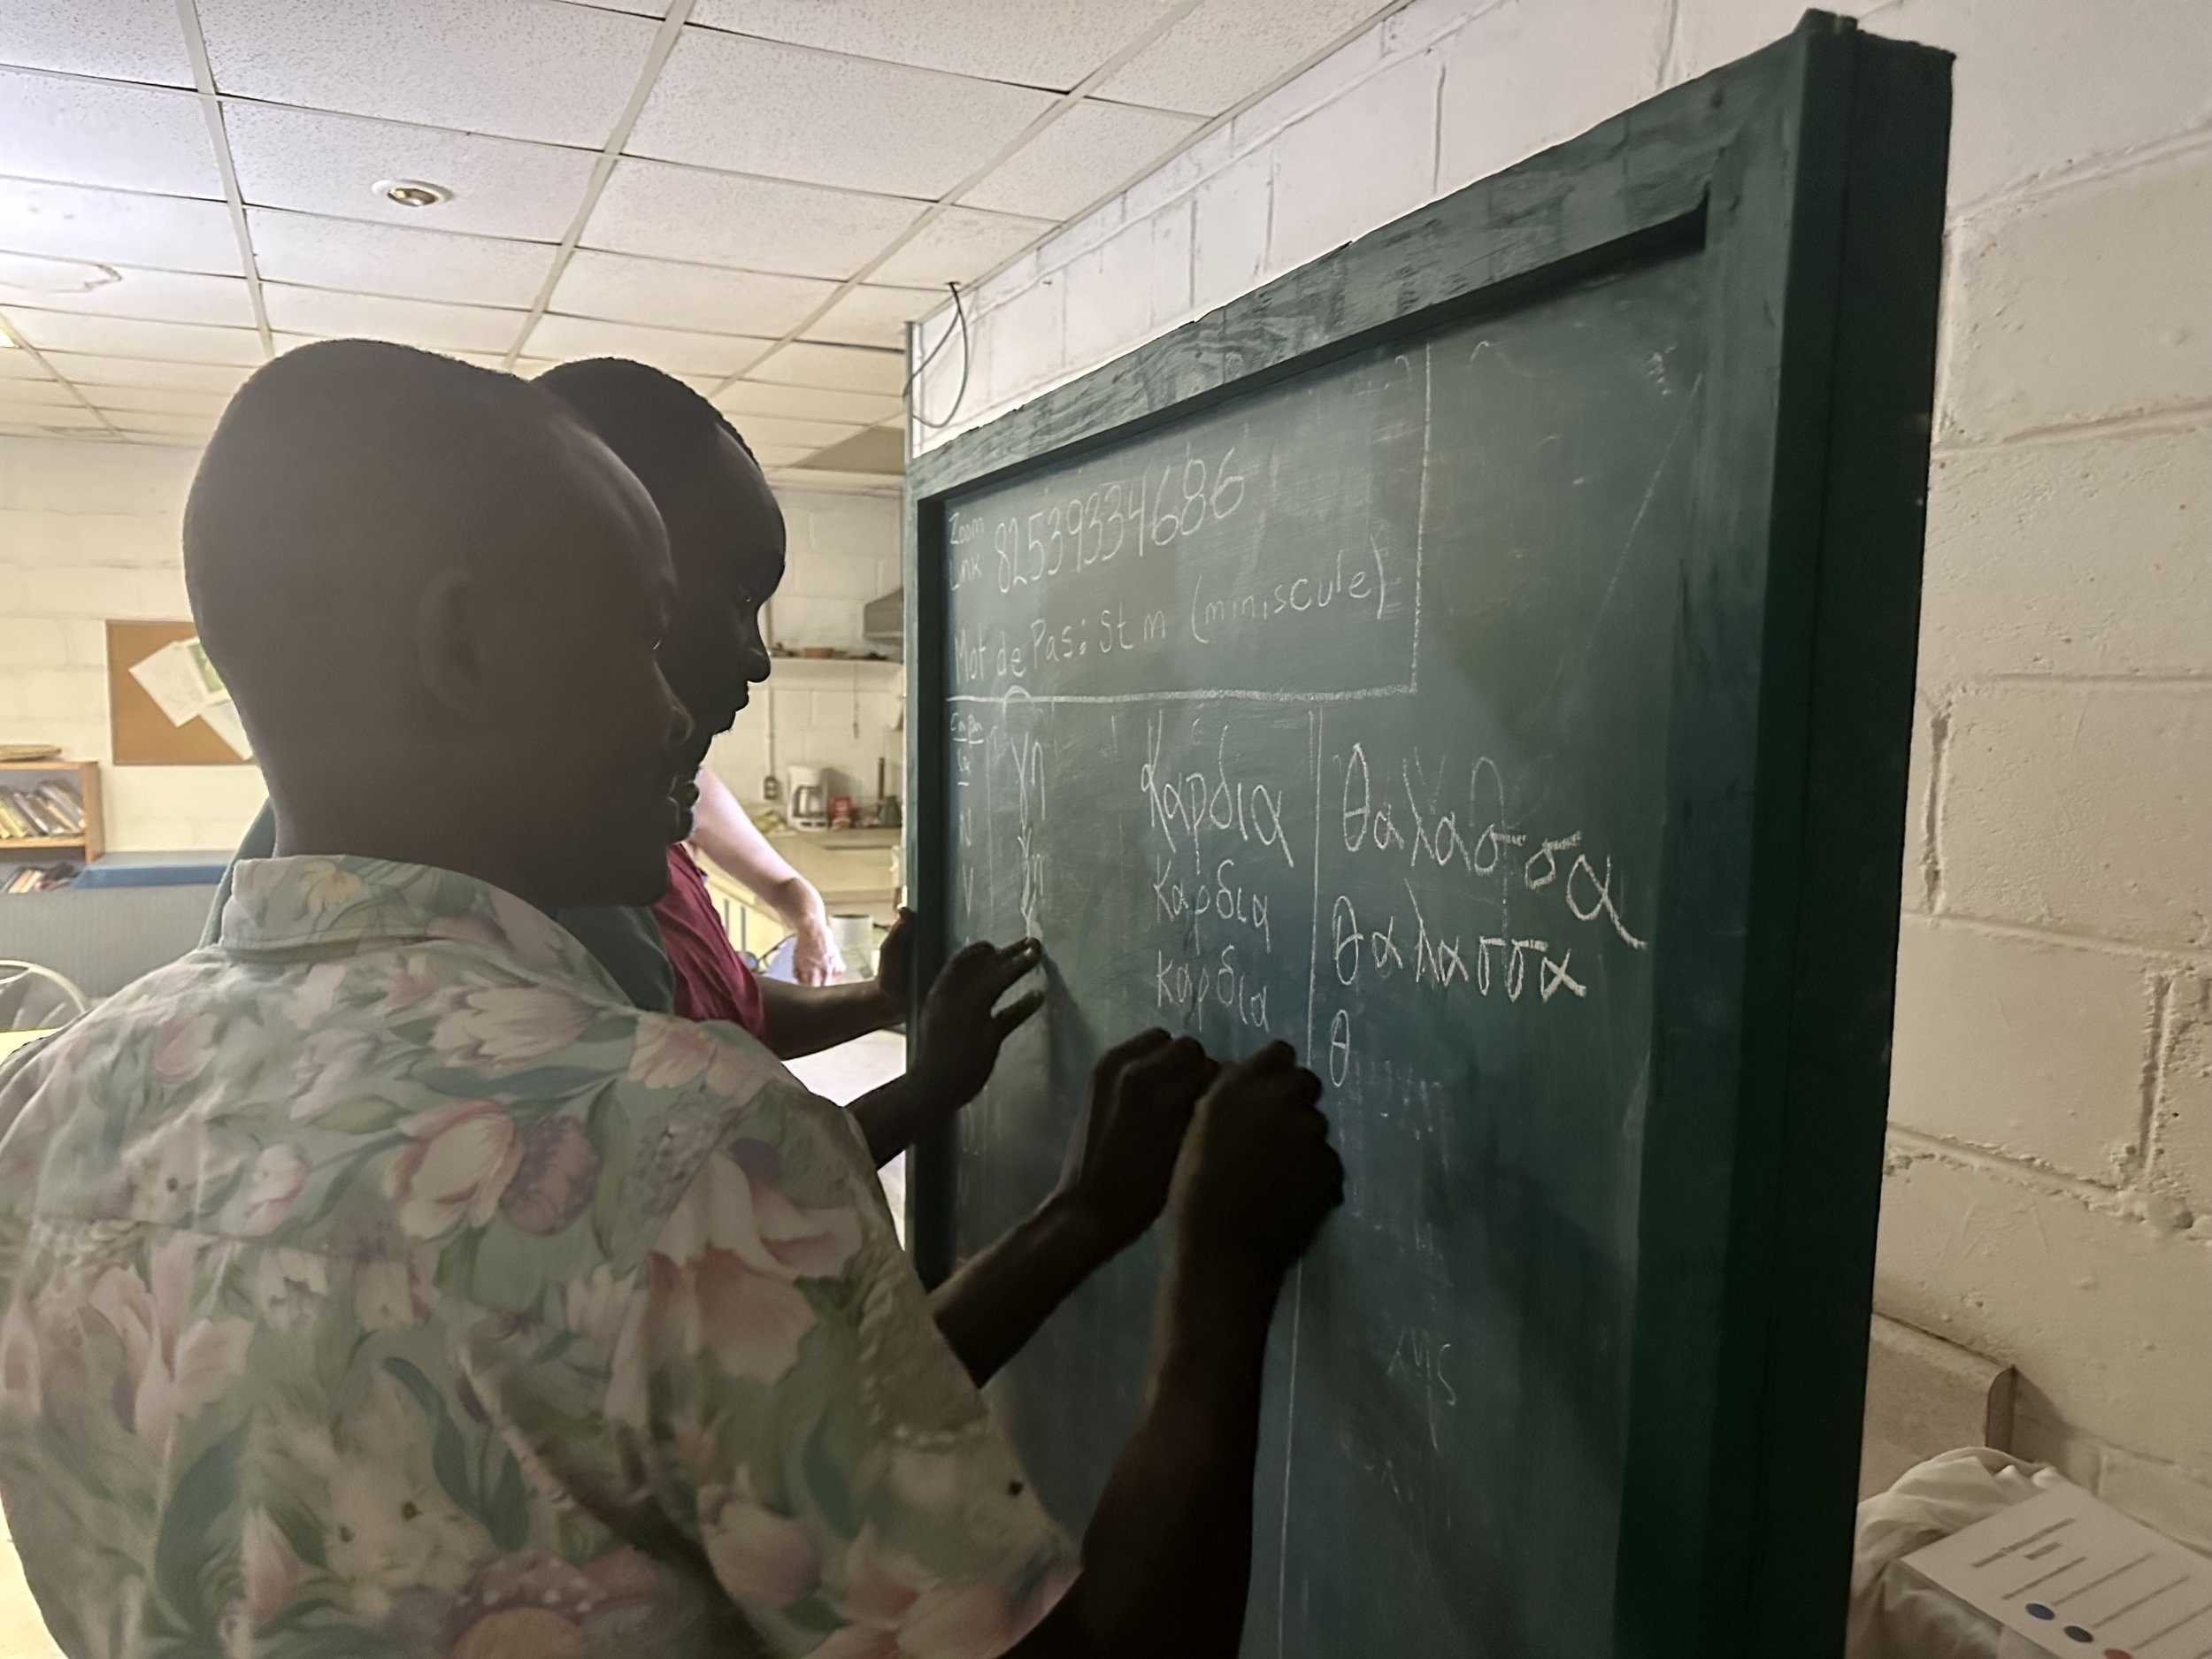 Zoom
Link 82539334686
Mot de Pas: stm (miniscule)
γη καρδια θαλασσα
N
γη καρδια θαλασσα
V
καρδια θ